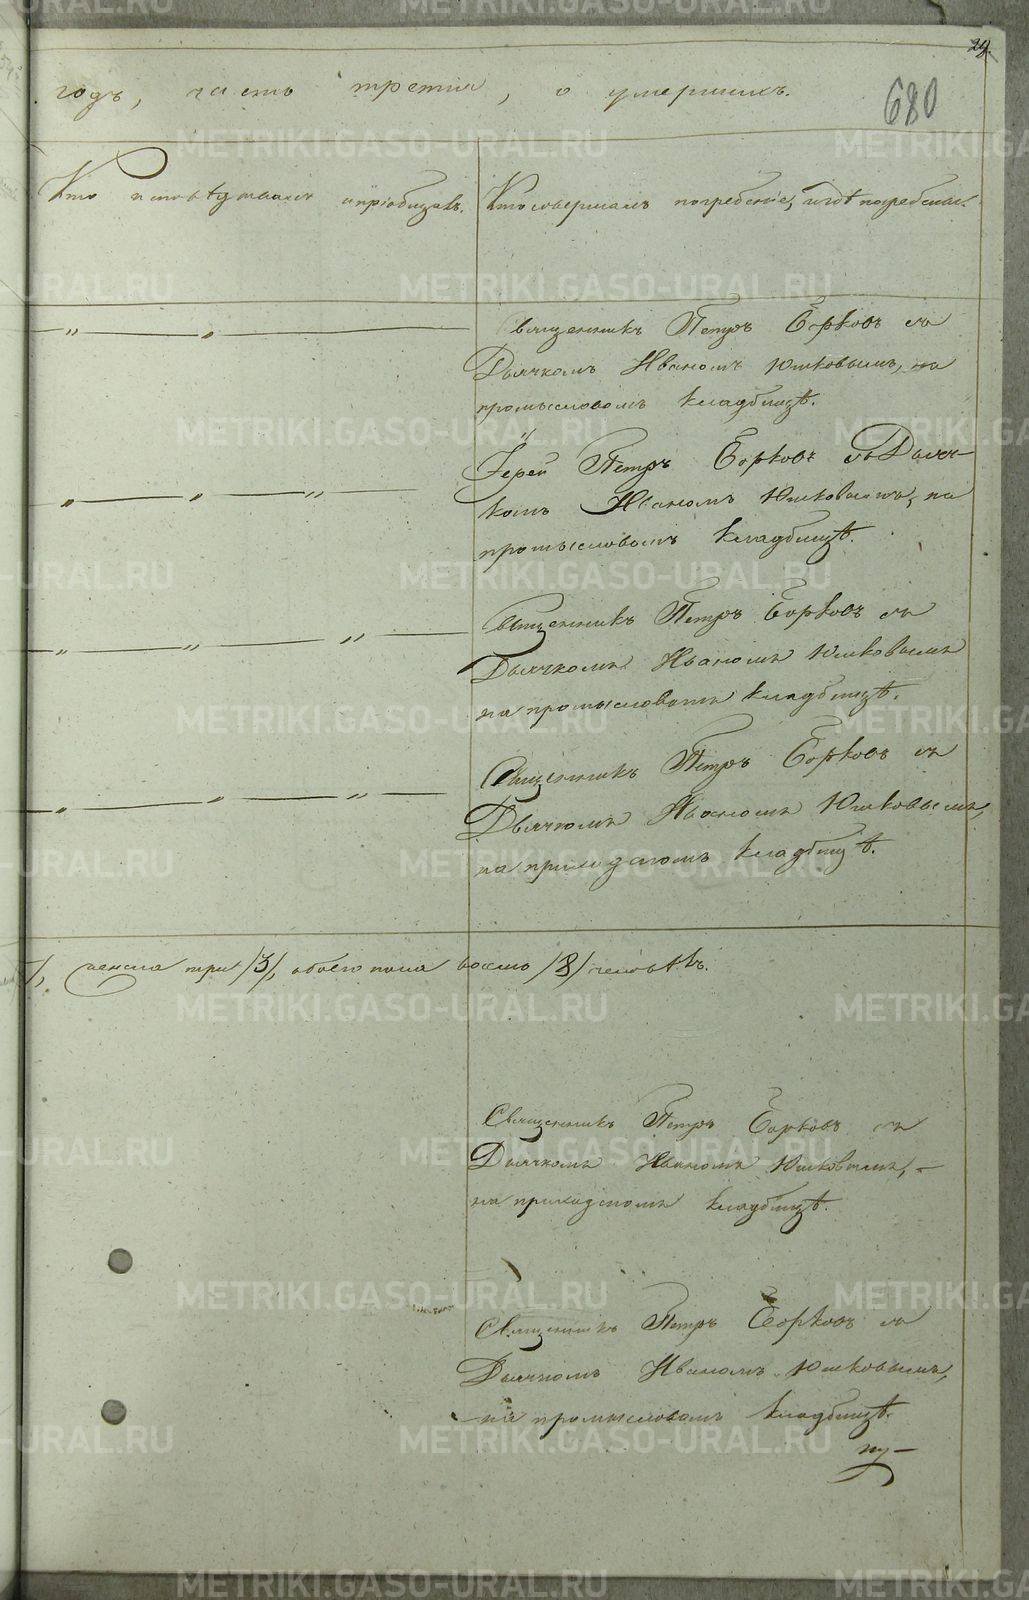 29.
680
годъ, часть третія, о умершихъ.
Кто исповѣдывалъ и пріобщалъ.
Кто совершалъ погребеніе, и гдѣ погребены.
Священникъ Петръ Борковъ съ
Дьячкомъ Иваномъ Юшковымъ, на
промысловомъ кладбищѣ.
Іерей Петръ Борковъ съ Дьяч-
комъ Иваномъ Юшковымъ, на
промысловомъ кладбищѣ.
Священникъ Петръ Борковъ съ
Дьячкомъ Иваномъ Юшковымъ
на промысловомъ кладбищѣ.
Священникъ Петръ Борковъ съ
Дьячкомъ Иваномъ Юшковымъ,
на приходскомъ кладбищѣ.
женска три /3/, обоего пола восемь /8/ человѣкъ.
Священникъ Петръ Борковъ съ
Дьячкомъ Иваномъ Юшковымъ,
на приходскомъ кладбищѣ.
Священникъ Петръ Борковъ съ
Дьячкомъ Иваномъ Юшковымъ,
на промысловомъ кладбищѣ.
METRIKI.GASO-URAL.RU